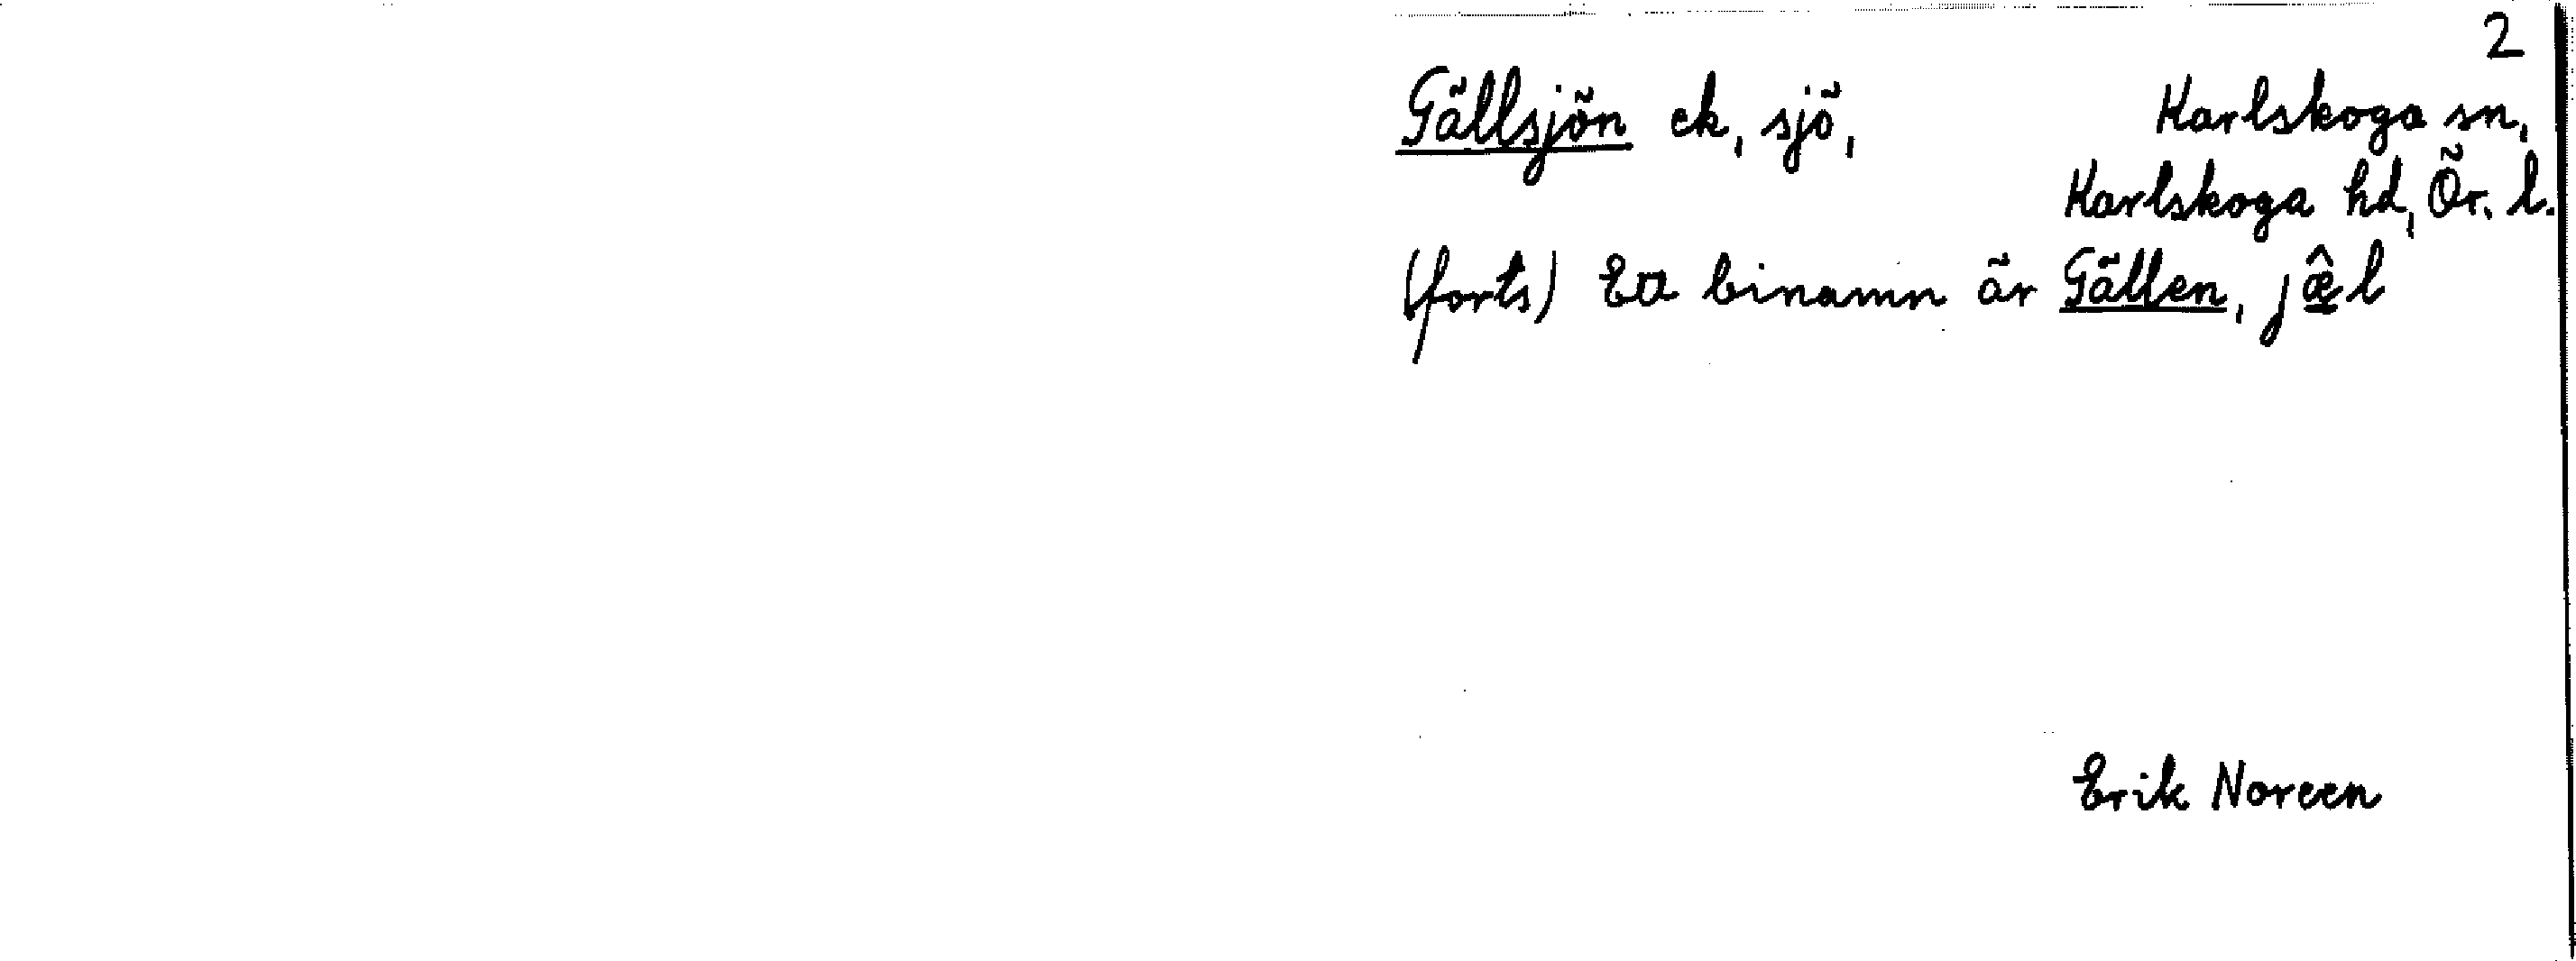 2
Gällsjön ek, sjö, Karlskoga sn,
Karlskoga hd, Ör. l.
(forts) Ett binamn är Gällen, jæ̂l
Erik Noreen